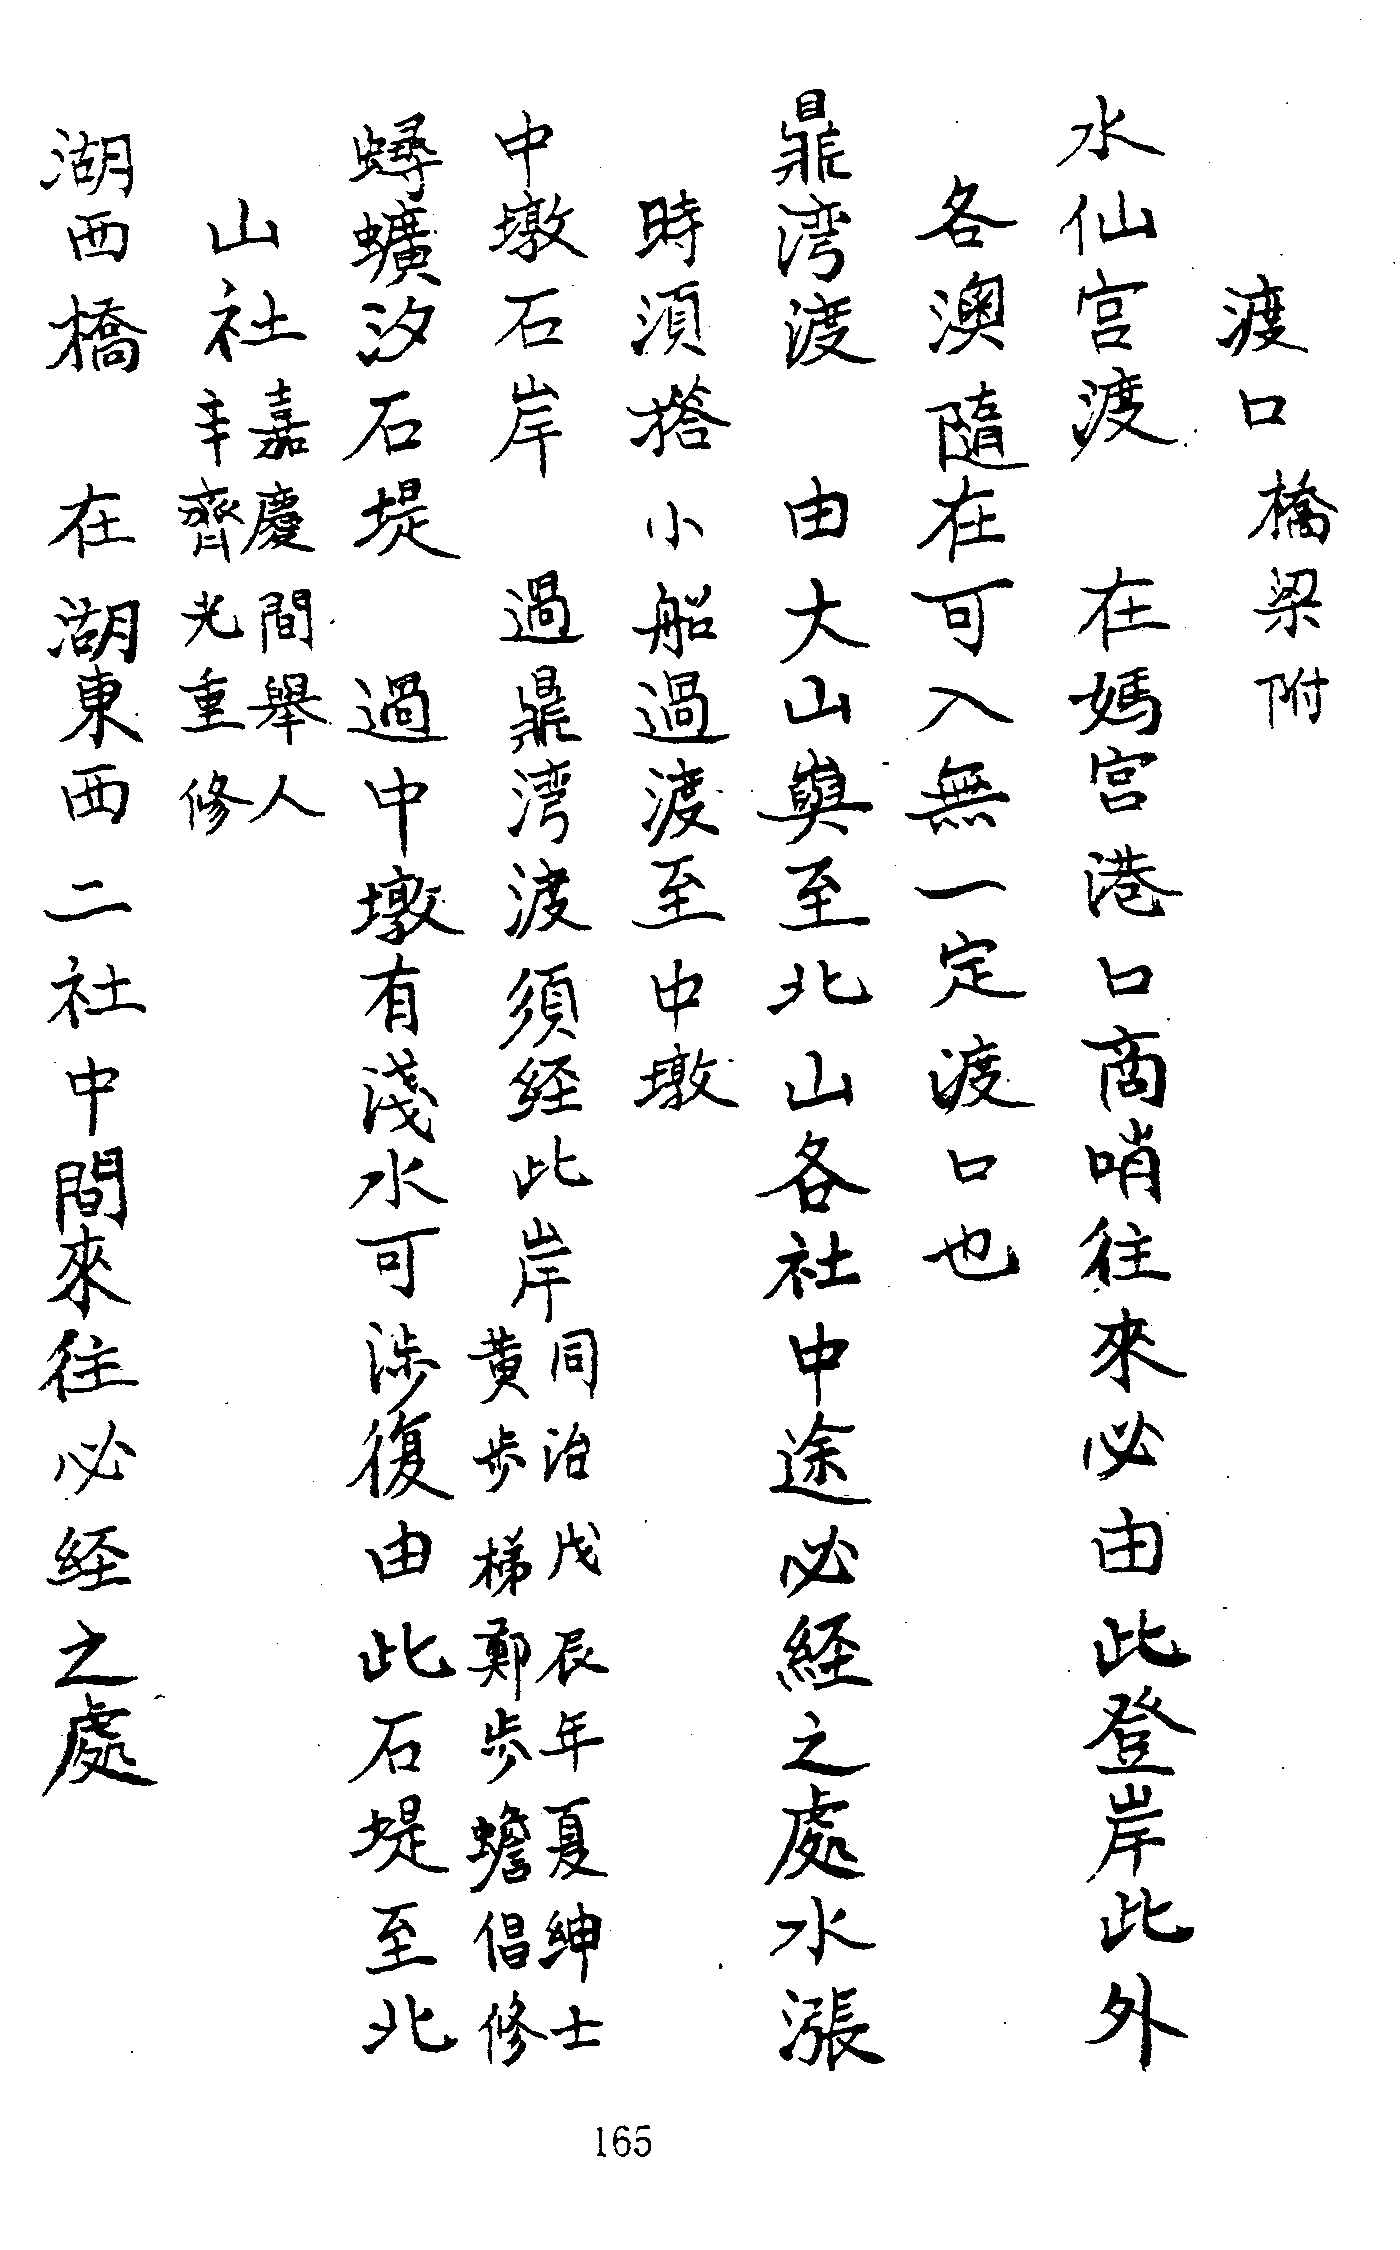 渡口 橋梁附
水仙宮渡 在媽宮港口商哨往來必由此登岸此外
各澳隨在可入無一定渡口也
鼎湾渡 由大山嶼至北山各社中途必經之處水漲
時須搭小船過渡至中墩
中墩石岸 過鼎湾渡須経此岸同治戊辰年夏紳士黃步梯鄭步蟾倡修
蟳蠦汐石堤 過中墩有淺水可涉復由此石堤至北
山社嘉慶間舉人辛齊光重修
湖西橋 在湖東西二社中間來往必経之處
165